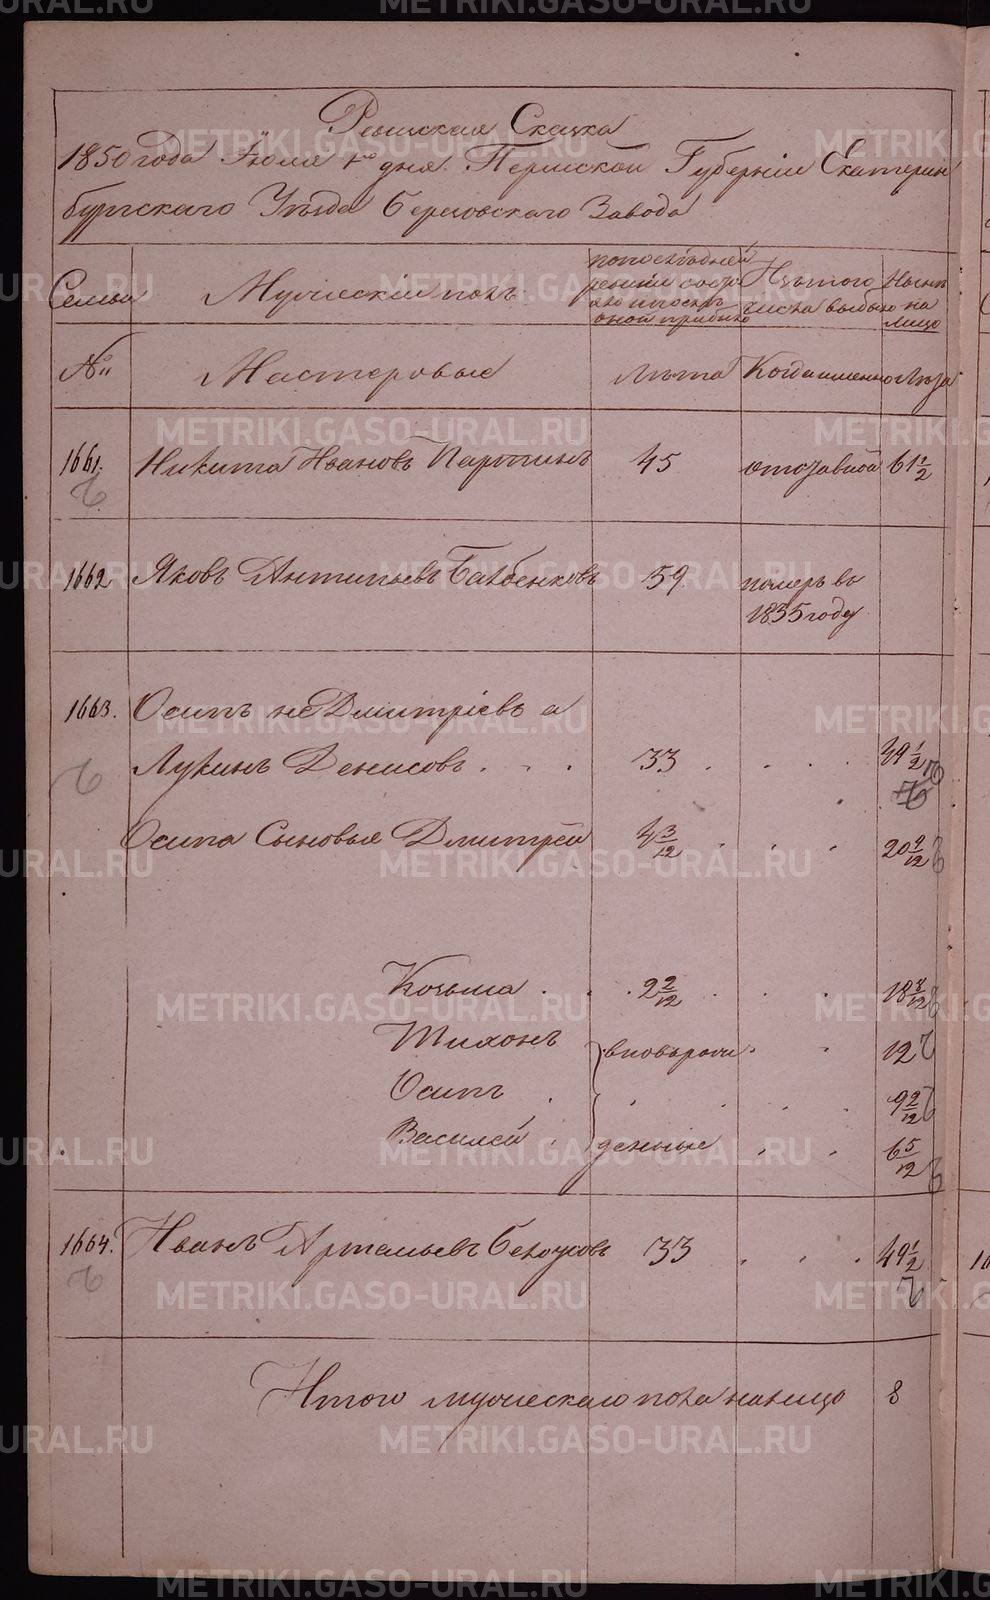 Ревизская Сказка
1850 года Июля 1го дня. Пермской Губерніи Екатерин
бургскаго Уѣзда Березовскаго Завода
Семьи
Мужескій полъ
по последней
ревизіи состо
яло и послѣ
оной прибыло
Изъ того
числа выбыло
Нынѣ
на
лицо
№
Мастеровые
Лѣта
Когда именно
Лѣта
1661.
Никита Ивановъ Партинъ
45
отставной
61 1/2
1662
Яковъ Антипьевъ
59.
померъ въ
1835 году
1663.
Осипъ не Дмитріевъ а
Лукинъ Денисовъ . . .
33 . . . .
49 1/2
Осипа Сыновья Дмитрей
4 3/12 . . .
20 9/12
Козьма .
. 2 2/12 . . .
18 8/12
Тихонъ
вновьрож
12
Осипъ .
9 2/12
Василей .
денные
6 5/12
1664.
Иванъ Артемьевъ Белоусовъ
33 . . .
49 1/2
Итого мужескаго пола налицо
8
METRIKI.GASO-URAL.RU